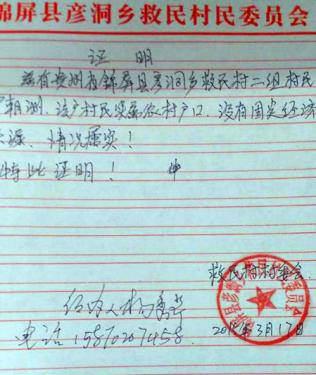 锦屏县彦洞乡救民村民委员会
证 明
兹有贵州省锦屏县彦洞乡救民村二组村民
朝洲、该户村民实属农村户口，没有固定经济
来源、情况属实！
特此证明！
救民村村委会
经办人杨秀华
电话 15870207458 2015年3月17日